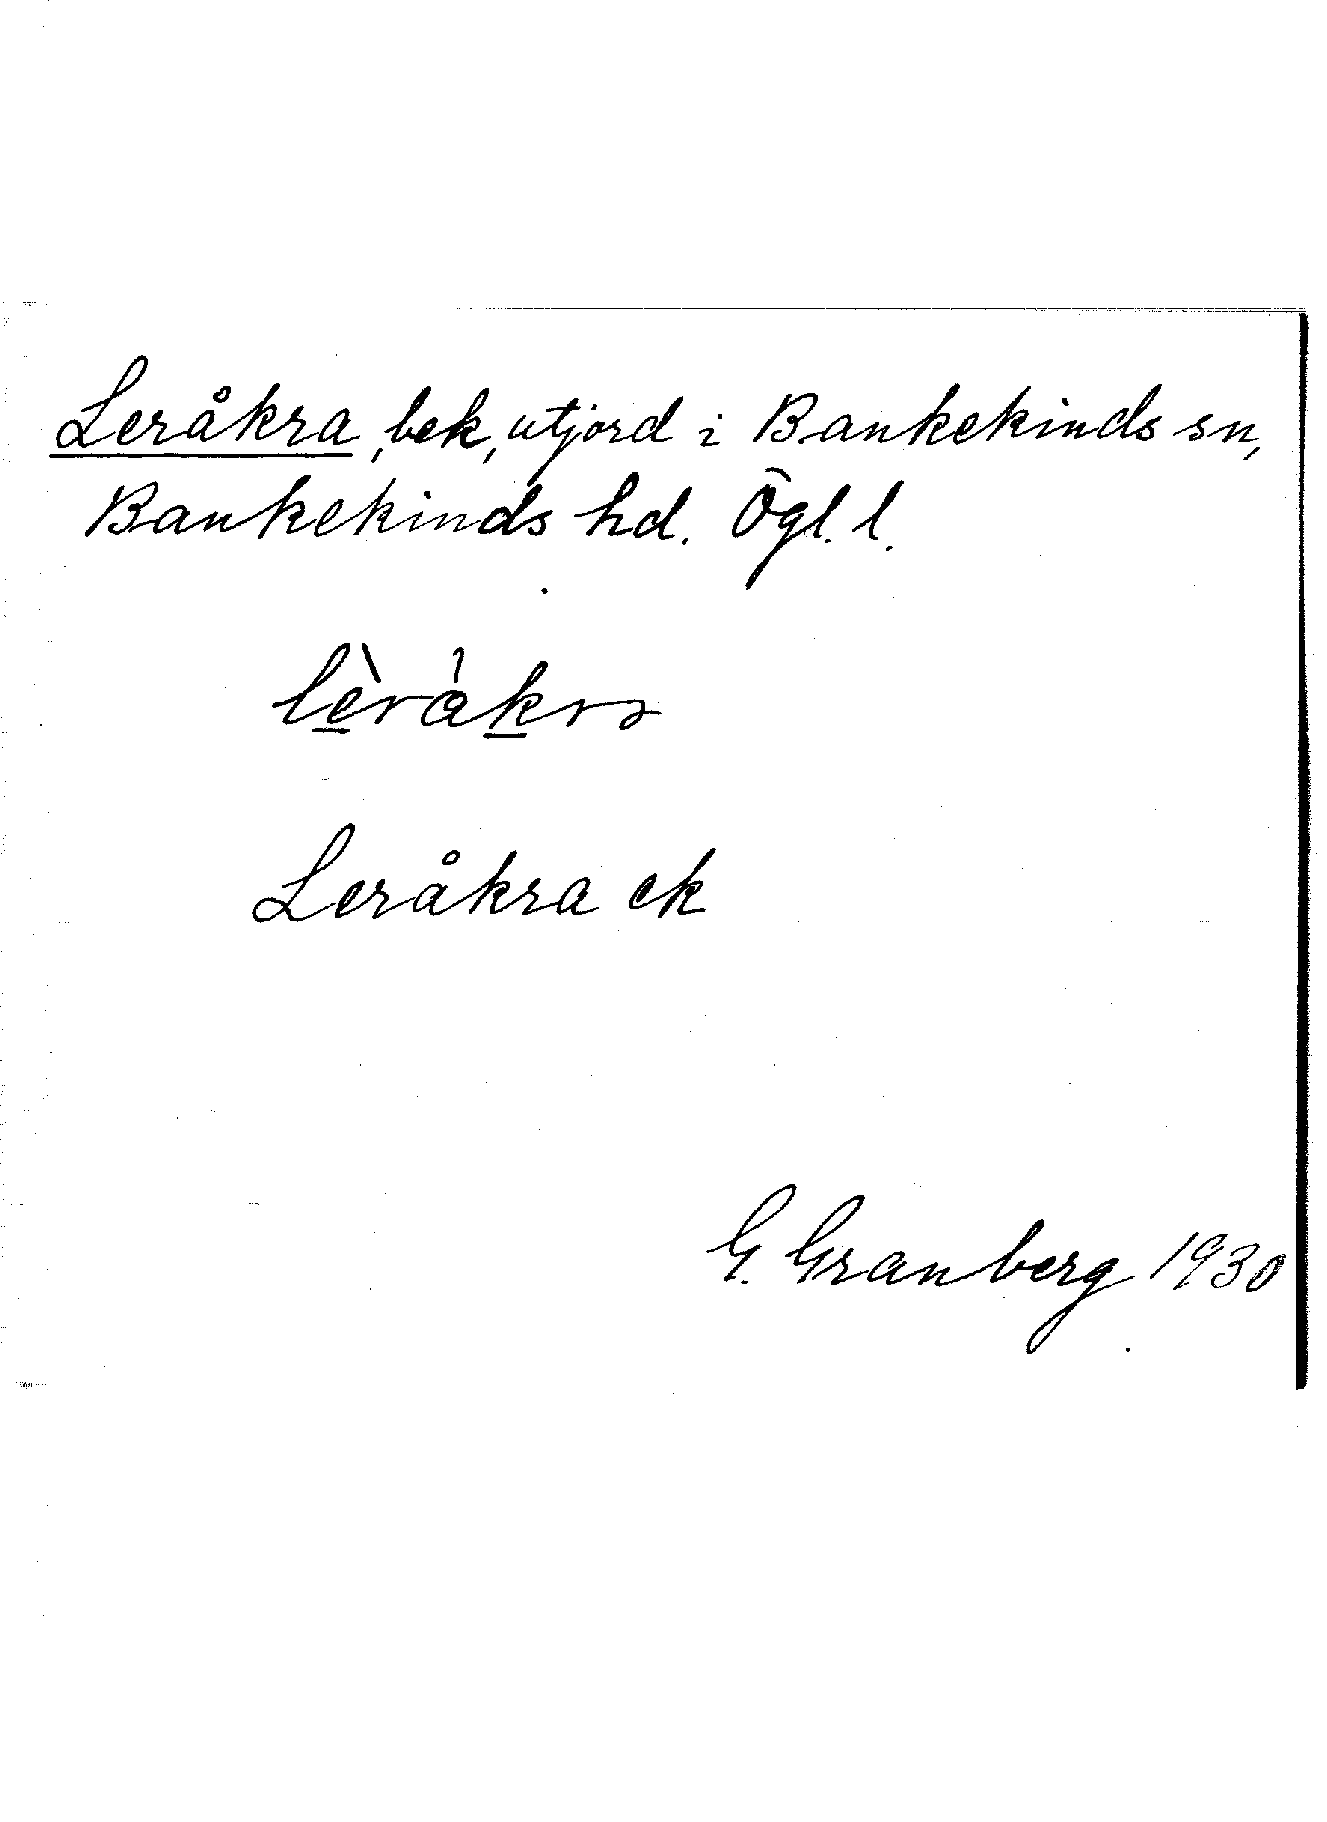 Leråkra, bek, utjord i Bankekinds sn,
Bankekinds hd. Ögl. l.
lèràkrə
Leråkra ek
G. Granberg 1930